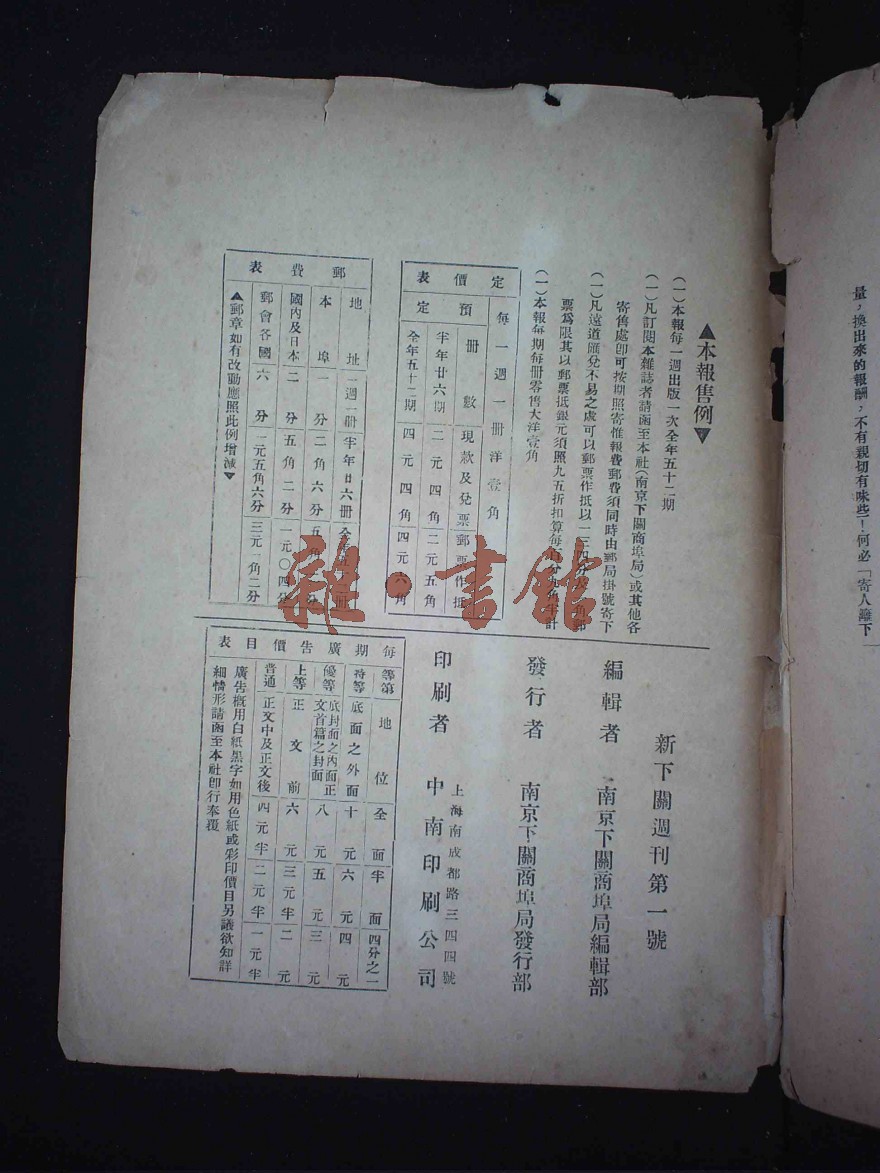 量，換出來的報酬，不有親切有味些！何必「寄人籬下
▲本報售例▼
(一)本報每一週出版一次全年五十二期
(一)凡訂閱本雜誌者請函至本社(南京下關商埠局)或其他各
寄售處卽可按期照寄惟報費郵費須同時由郵局掛號寄下
(一)凡遠道匯兌不易之處可以郵票作抵以一二三四分及一角郵
票爲限其以郵票抵銀元須照九五折扣算每
(一)本報每期每冊零售大洋壹角
定價表
每一週一冊洋壹角
預定
冊數 現款及兌票 郵票作抵
半年廿六期 二元四角 二元五角
全年五十二期 四元四角 四元六角
郵費表
地址 一週一冊 半年廿六冊
本埠 一分 二角六分
國內及日本 二分 五角二分 一元〇四分
郵會各國 六分 一元五角六分 三元一角二分
▲郵章如有改動應照此例增減▼
新下關週刊第一號
編輯者 南京下關商埠局編輯部
發行者 南京下關商埠局發行部
上海南成都路三四四號
印刷者 中南印刷公司
每期廣告價目表
等第 地位 全面 半面 四分之一
特等 底面之外面 十元 六元 四元
優等 底封面之內面正文首篇之封面 八元 五元 三元
上等 正文前 六元 三元半 二元
普通 正文中及正文後 四元半 二元半 一元半
廣告槪用白紙黑字如用色紙或彩印價目另議欲知詳
細情形請函至本社卽行奉覆
雜·書館